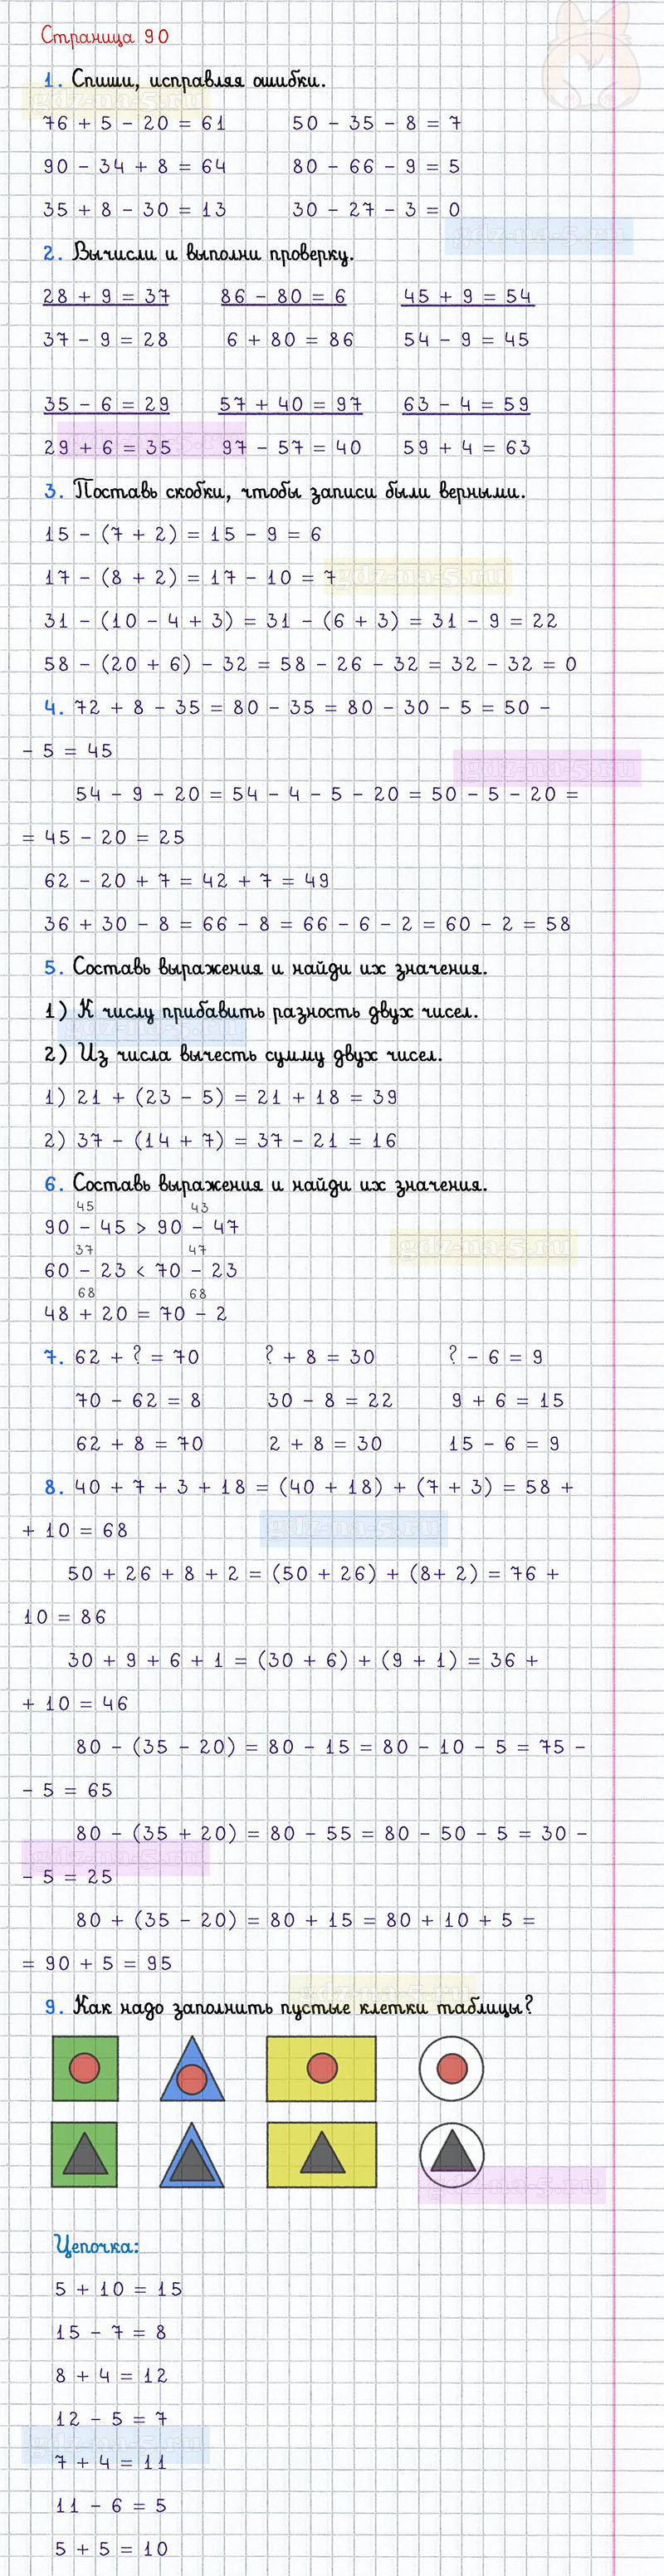 Страница 90
1. Спиши, исправляя ошибки.
gdz-na-5.ru
76 + 5 - 20 = 61 50 - 35 - 8 = 7
90 - 34 + 8 = 64 80 - 66 - 9 = 5
35 + 8 - 30 = 13 30 - 27 - 3 = 0
gdz-na-5.ru
2. Вычисли и выполни проверку.
28 + 9 = 37 86 - 80 = 6 45 + 9 = 54
37 - 9 = 28 6 + 80 = 86 54 - 9 = 45
35 - 6 = 29 57 + 40 = 97 63 - 4 = 59
29 + 6 = 35 97 - 57 = 40 59 + 4 = 63
3. Поставь скобки, чтобы записи были верными.
15 - (7 + 2) = 15 - 9 = 6
17 - (8 + 2) = 17 - 10 = 7
gdz-na-5.ru
31 - (10 - 4 + 3) = 31 - (6 + 3) = 31 - 9 = 22
58 - (20 + 6) - 32 = 58 - 26 - 32 = 32 - 32 = 0
4. 72 + 8 - 35 = 80 - 35 = 80 - 30 - 5 = 50 -
- 5 = 45
gdz-na-5.ru
54 - 9 - 20 = 54 - 4 - 5 - 20 = 50 - 5 - 20 =
= 45 - 20 = 25
62 - 20 + 7 = 42 + 7 = 49
36 + 30 - 8 = 66 - 8 = 66 - 6 - 2 = 60 - 2 = 58
5. Составь выражения и найди их значения.
1) К числу прибавить разность двух чисел.
2) Из числа вычесть сумму двух чисел.
1) 21 + (23 - 5) = 21 + 18 = 39
2) 37 - (14 + 7) = 37 - 21 = 16
6. Составь выражения и найди их значения.
45 43
90 - 45 > 90 - 47
gdz-na-5.ru
37 47
60 - 23 < 70 - 23
68 68
48 + 20 = 70 - 2
7. 62 + ? = 70 ? + 8 = 30 ? - 6 = 9
70 - 62 = 8 30 - 8 = 22 9 + 6 = 15
62 + 8 = 70 2 + 8 = 30 15 - 6 = 9
8. 40 + 7 + 3 + 18 = (40 + 18) + (7 + 3) = 58 +
+ 10 = 68
gdz-na-5.ru
50 + 26 + 8 + 2 = (50 + 26) + (8+ 2) = 76 +
10 = 86
30 + 9 + 6 + 1 = (30 + 6) + (9 + 1) = 36 +
+ 10 = 46
80 - (35 - 20) = 80 - 15 = 80 - 10 - 5 = 75 -
- 5 = 65
80 - (35 + 20) = 80 - 55 = 80 - 50 - 5 = 30 -
gdz-na-5.ru
- 5 = 25
80 + (35 - 20) = 80 + 15 = 80 + 10 + 5 =
= 90 + 5 = 95
gdz-na-5.ru
9. Как надо заполнить пустые клетки таблицы?
gdz-na-5.ru
Цепочка:
5 + 10 = 15
15 - 7 = 8
8 + 4 = 12
12 - 5 = 7
gdz-na-5.ru
7 + 4 = 11
11 - 6 = 5
5 + 5 = 10